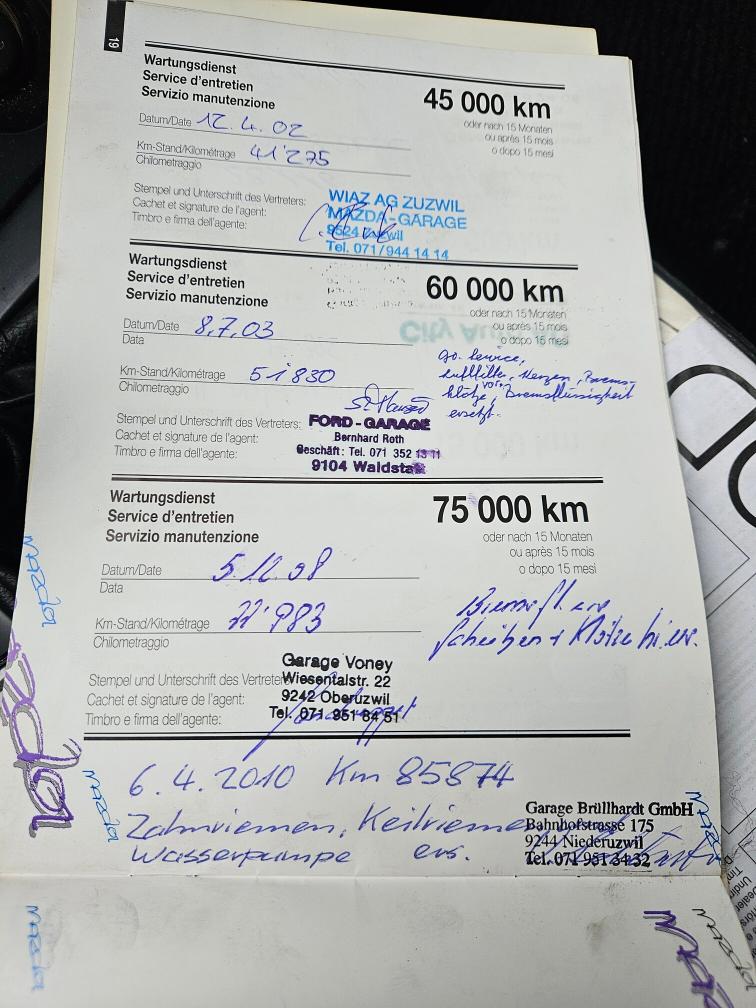 19
Wartungsdienst
Service d'entretien
Servizio manutenzione
45 000 km
oder nach 15 Monaten
ou après 15 mois
o dopo 15 mesi
Datum/Date 12.4.02
Km-Stand/Kilométrage 41'275
Chilometraggio
Stempel und Unterschrift des Vertreters:
Cachet et signature de l'agent:
Timbro e firma dell'agente:
WIAZ AG ZUZWIL
MAZDA-GARAGE
9524 Zuzwil
Tel. 071/944 14 14
Wartungsdienst
Service d'entretien
Servizio manutenzione
60 000 km
oder nach 15 Monaten
ou après 15 mois
o dopo 15 mesi
Datum/Date 8.7.03
Data
Km-Stand/Kilométrage 51'830
Chilometraggio
Service,
Luftfilter, Kerzen, Brems-
klötze vorn, Bremsflüssigkeit
ersetzt.
Stempel und Unterschrift des Vertreters:
Cachet et signature de l'agent:
Timbro e firma dell'agente:
FORD-GARAGE
Bernhard Roth
Geschäft: Tel. 071 352 13 11
9104 Waldsta
Wartungsdienst
Service d'entretien
Servizio manutenzione
75 000 km
oder nach 15 Monaten
ou après 15 mois
o dopo 15 mesi
Datum/Date
Data
Km-Stand/Kilométrage 77'983
Chilometraggio
Scheiben + Klötze hi. ers.
Stempel und Unterschrift des Vertreters
Cachet et signature de l'agent:
Timbro e firma dell'agente:
Garage Voney
Wiesentalstr. 22
9242 Oberuzwil
Tel. 071 951 84 51
6.4.2010 Km 85874
Zahnriemen, Keilrieme
Wasserpumpe ers.
Garage Brüllhardt GmbH
Bahnhofstrasse 175
9244 Niederuzwil
Tel. 071 951 34 32
Mazda
Mazda
Mazda
Mazda
Mazda